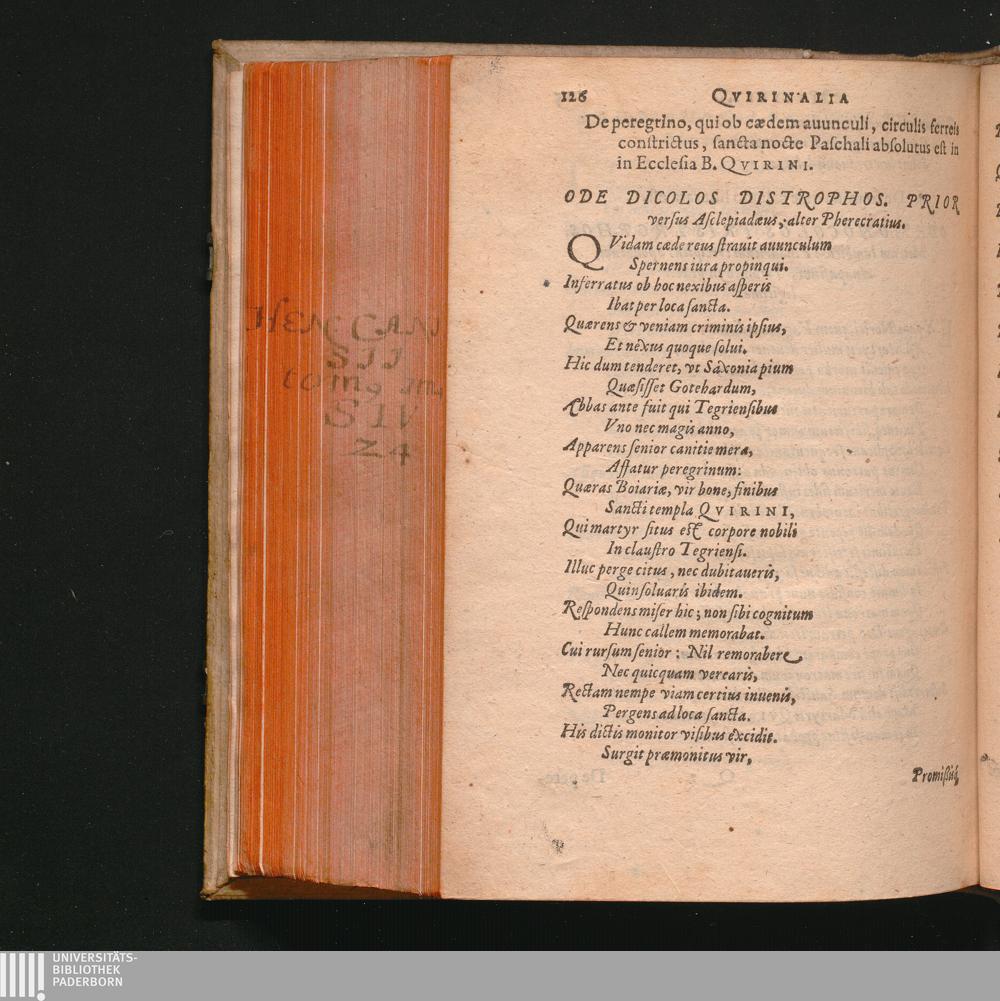 126 QVIRINALIA
De peregrino, qui ob cædem auunculi, circulis ferreis
constrictus, sancta nocte Paschali absolutus est in
in Ecclesia B. QVIRINI.
ODE DICOLOS DISTROPHOS. PRIOR
versus Asclepiadæus, alter Pherecratius.
QVidam cæde reus strauit auunculum
Spernens iura propinqui.
Inferratus ob hoc nexibus asperis
Ibat per loca sancta.
Quærens & veniam criminis ipsius,
Et nexus quoque solui.
Hic dum tenderet, vt Saxonia pium
Quæsisset Gotehardum,
Abbas ante fuit qui Tegriensibus
Vno nec magis anno,
Apparens senior canitie mera,
Affatur peregrinum:
Quæras Boiariæ, vir bone, finibus
Sancti templa QVIRINI,
Qui martyr situs est corpore nobili
In claustro Tegriensi.
Illuc perge citus, nec dubitaueris,
Quin soluaris ibidem.
Respondens miser hic; non sibi cognitum
Hunc callem memorabat.
Cui rursum senior: Nil remorabere
Nec quicquam verearis,
Rectam nempe viam certius inuenis,
Pergens ad loca sancta.
His dictis monitor visibus excidit.
Surgit præmonitus vir,
Promissisq́,
HEN CANI
SII
tom, in,
SIV
24
UNIVERSITÄTS-
BIBLIOTHEK
PADERBORN